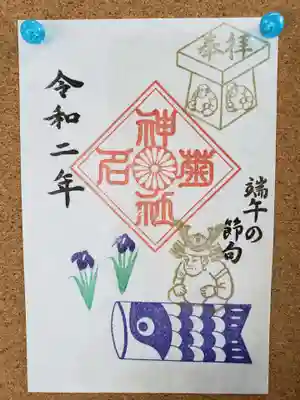 奉拝
端午の
節句
菊名
神社
令和二年